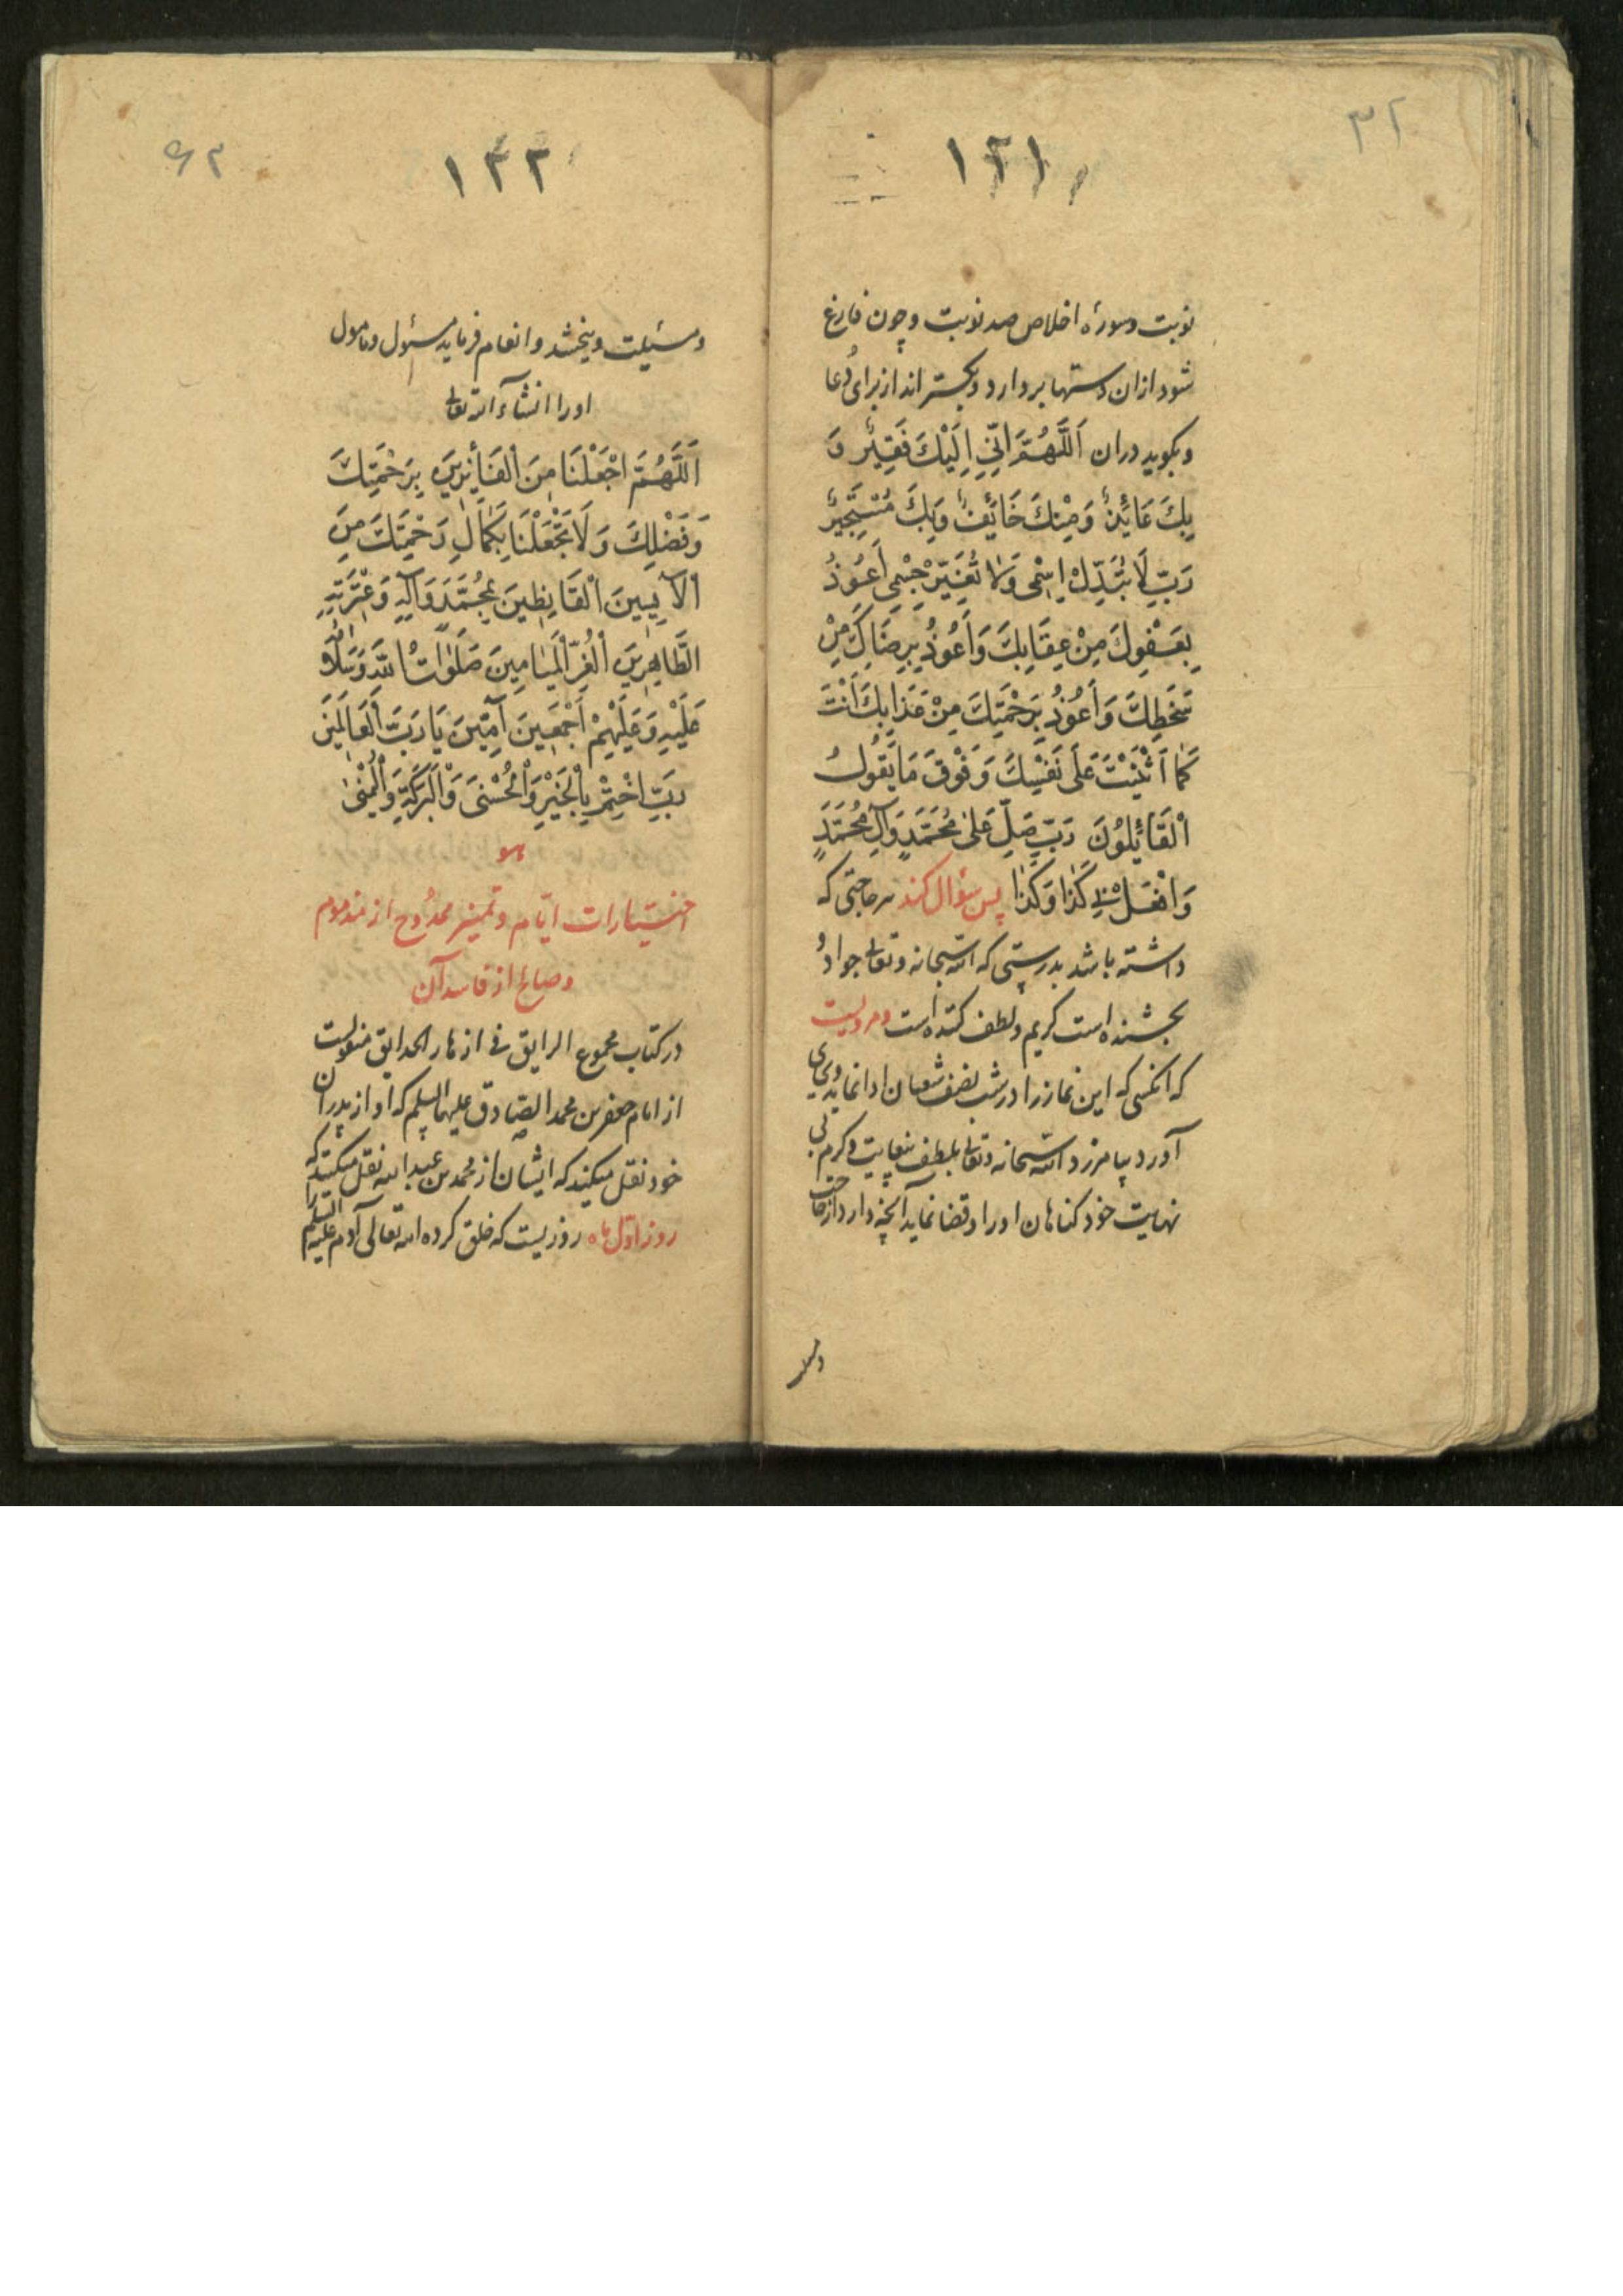 ۳۲
۱۲۱
نوبت وسورهٔ اخلاص صد نوبت وچون فارغ
شود ازان دستها بردارد وبگستراند از برای دُعا
وبگوید دران اَللّٰهُمَّ اِنّي اِلَيْكَ فَقِيْرٌ وَ
بِكَ عَائِذٌ وَمِنْكَ خَائِفٌ وَبِكَ مُسْتَجِيْرٌ
رَبِّ لَا تُبَدِّلْ اِسْمِى وَلَا تُغَيِّرْ جِسْمِى اَعُوذُ
بِعَفْوِكَ مِنْ عِقَابِكَ وَاَعُوذُ بِرِضَاكَ مِنْ
سَخَطِكَ وَاَعُوذُ بِرَحْمَتِكَ مِنْ عَذَابِكَ اَنْتَ
كَمَا اَثْنَيْتَ عَلَى نَفْسِكَ وَفَوْقَ مَا يَقُولُ
اْلقَائِلُونَ رَبِّ صَلِّ عَلٰى مُحَمَّدٍ وَآلِ مُحَمَّدٍ
وَافْعَلْ بِي كَذَا وَكَذَا پس سؤال کند هر حاجتی که
داشته باشد بدرستی که الله سبحانه وتعالی جوادُ
بخشنده است کریم ولطف کننده است ومرویست
که انکسی که این نماز را در شب نصف شعبان ادا نماید وبجای
آورد بیامرزد الله سبحانه وتعالی بلطف بیغایت وکرم بی
نهایت خود کناهان اورا وقضا نماید آنچه دارد از حاجت
۶۲
۱۲۲
ومسئیلت وببخشد وانعام فرماید مسئول ومامول
اورا انشاء الله تعالی
اَللّٰهُمَّ اجْعَلْنَا مِنَ اْلفَائِزِينَ بِرَحْمَتِكَ
وَفَضْلِكَ وَلَا تَجْعَلْنَا بِكَمَالِ رَحْمَتِكَ مِنَ
اْلآيِسِينَ اْلقَانِطِينَ بِمُحَمَّدٍ وَآلِهِ وَعِتْرَتِهِ
الطَّاهِرِينَ اْلغُرِّ اْلمَيَامِينَ صَلَوَاتُ اللهِ وَسَلَامُهُ
عَلَيْهِ وَعَلَيْهِمْ اَجْمَعِينَ آمِينَ يَا رَبَّ اْلعَالَمِينَ
رَبِّ اخْتِمْ بِالْخَيْرِ وَاْلحُسْنَى وَاْلبَرَكَةِ وَاْلمُنٰى
هو
اختیارات ایّام وتمیز ممدُوح از مذموم
وصالح از فاسد آن
در کتاب مجموع الرایق فی ازهار الحدایق منقولست
از امام جعفر بن محمد الصّادق علیهما السلم که او از پدران
خود نقل میکند که ایشان از محمد بن عبد الله نقل میکنند که
روز اوّل ماه روزیست که خلق کرده الله تعالی آدم علیه السلم را